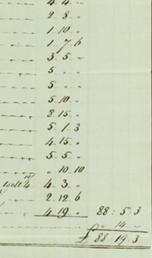 4. 4. "
2. 8. "
1. 10. "
1. 7. 6
3. 5. "
5. "
5. "
5. 10. "
8. 15. "
5. 1. 3
4. 15. "
5. 5. "
" 10. 10
4. 3. "
2. 12. 6
4. 19. " 88: 5. 3
" 14. "
£ 88. 19. 3